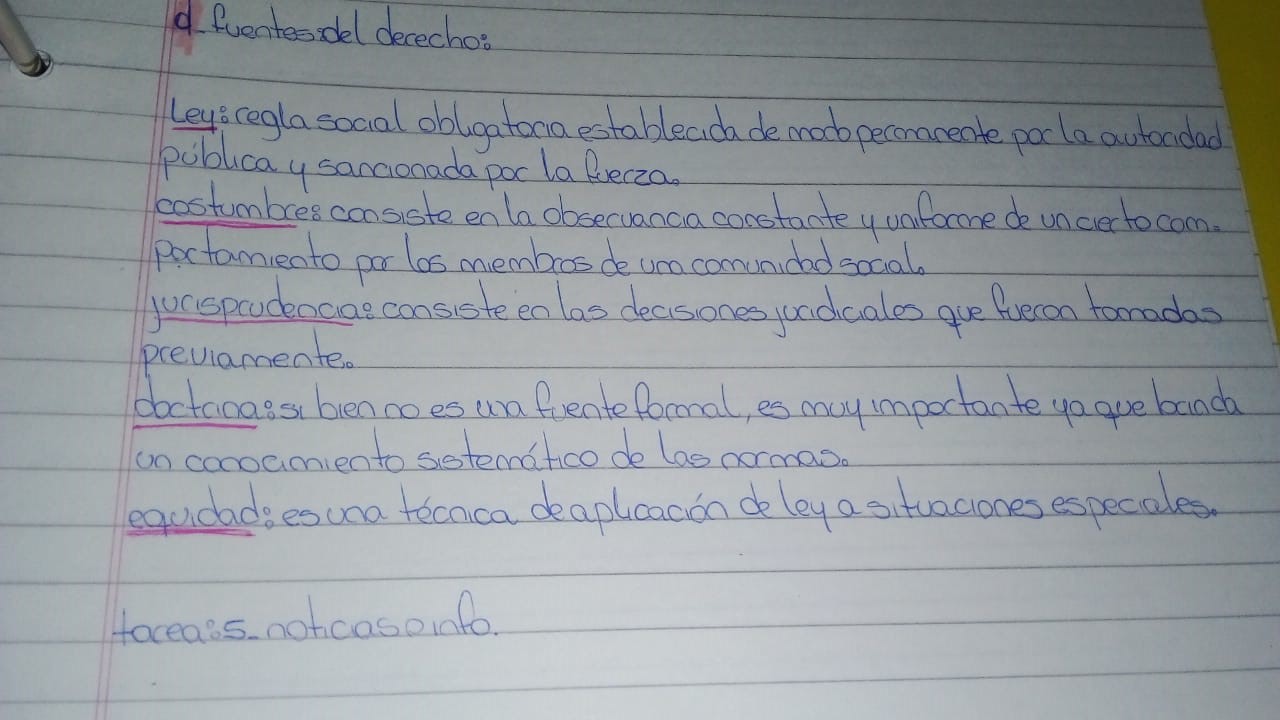 d_ fuentes del derecho:
Ley: regla social obligatoria establecida de modo permanente por la autoridad
pública y sancionada por la fuerza.
costumbres: consiste en la observancia constante y uniforme de un cierto com-
portamiento por los miembros de una comunidad social.
jurisprudencia: consiste en las decisiones juridiciales que fueron tomadas
previamente.
doctrina: si bien no es una fuente formal, es muy importante ya que brinda
un conocimiento sistemático de las normas.
equidad: es una técnica de aplicación de ley a situaciones especiales.
tarea: 5_ noticias o info.